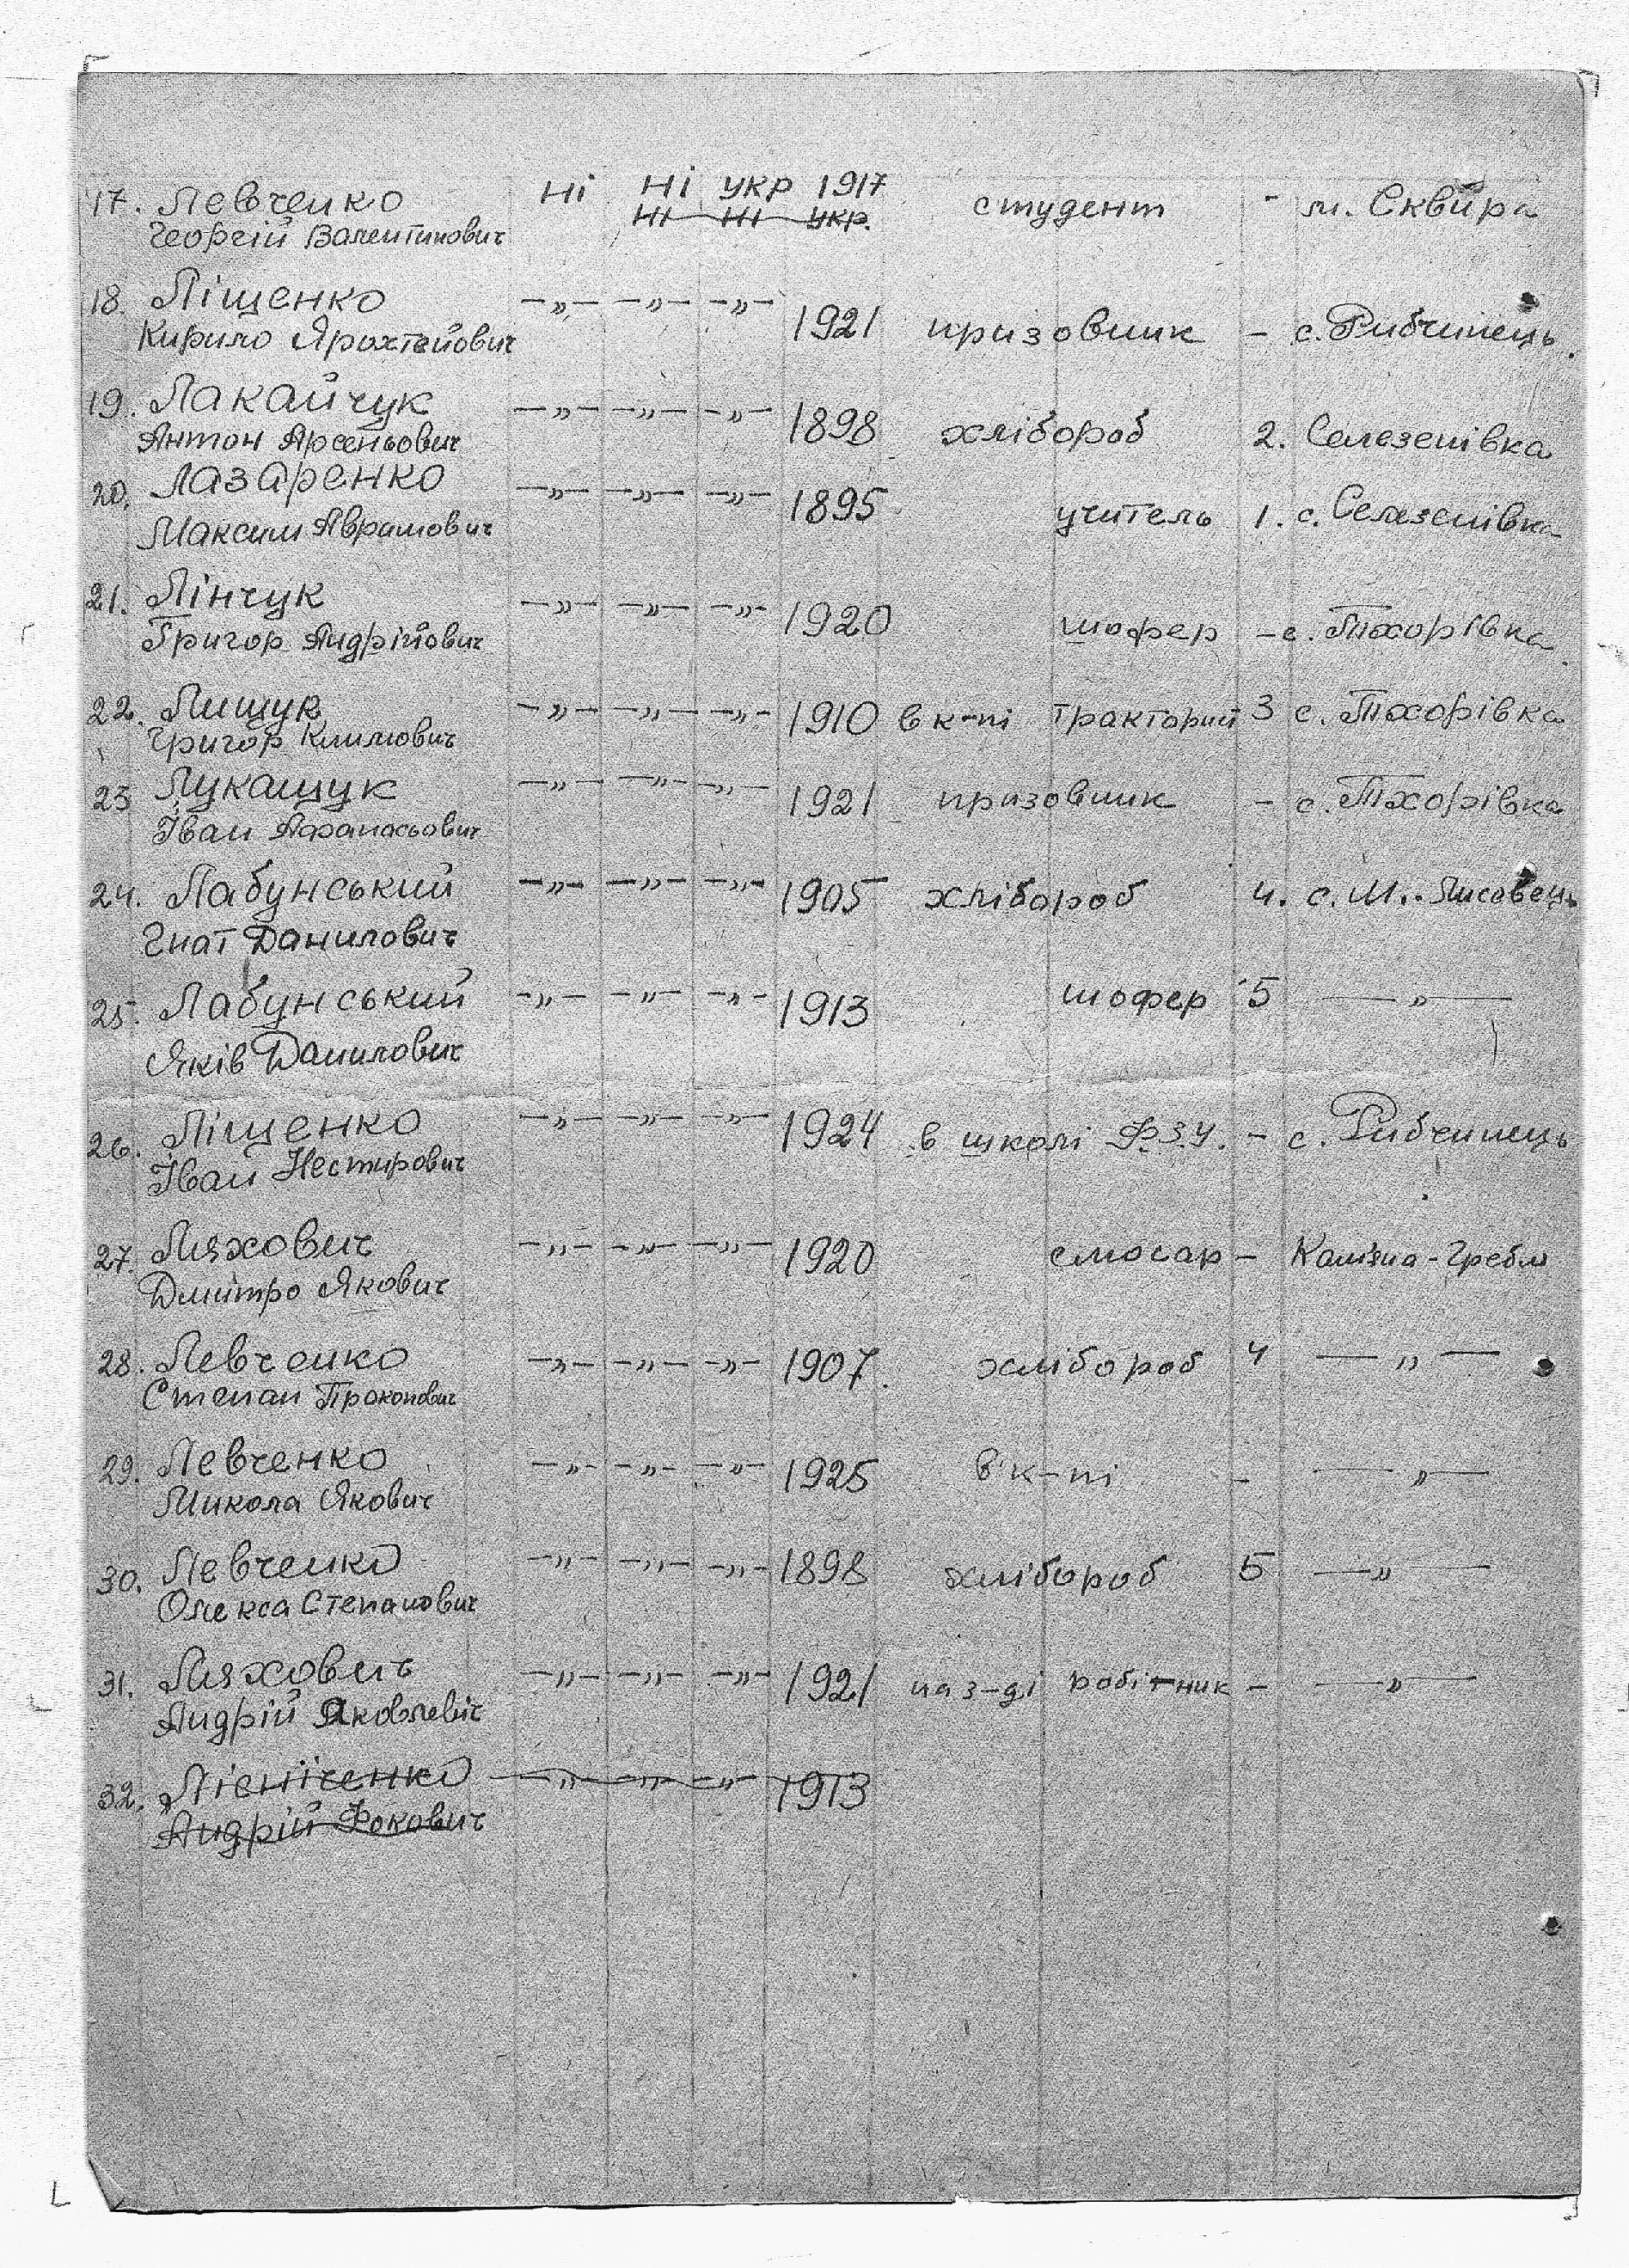 17. Левченко ні ні укр 1917 студент - м. Сквира
Георгій Валентинович ні ні укр.
18. Ліщенко —„— —„— —„— 1921 призовник - с. Рибчинець.
Кирило
19. Лакайчук —„— —„— —„— 1898 хлібороб 2. Селезенівка
Антон Арсеньович
20. Лазаренко —„— —„— —„— 1895 учитель 1. с. Селезенівка
Максим Аврамович
21. Лінчук —„— —„— —„— 1920 шофер - с. Тхорівка
Григор Андрійович
22. Лищук —„— —„— —„— 1910 в к-пі тракторий 3 с. Тхорівка
Григор Климович
23 Лукащук —„— —„— —„— 1921 призовник - с. Тхорівка
Іван Афанасьович
24. Лабунський —„— —„— —„— 1905 хлібороб 4. с. М.. Лисовець
Гнат Данилович
25. Лабунський —„— —„— —„— 1913 шофер 5 —„—
Яків Данилович
26. Ліщенко —„— —„— —„— 1924 в школі ФЗУ. - с. Рибчинець
Іван Нестирович
27. Ляхович —„— —„— —„— 1920 слюсар - Гребля
Дмитро Якович
28. Левченко —„— —„— —„— 1907. хлібороб 4 —„—
Степан Прокопович
29. Левченко —„— —„— —„— 1925 в к-пі - —„—
Микола Якович
30. Левченко —„— —„— —„— 1898 хлібороб 5 —„—
Олекса Степанович
31. Ляхович —„— —„— —„— 1921 на з-ді робітник - —„—
Андрій Яковлевіч
32. Лісніченко —„— —„— —„— 1913
Андрій Фокович